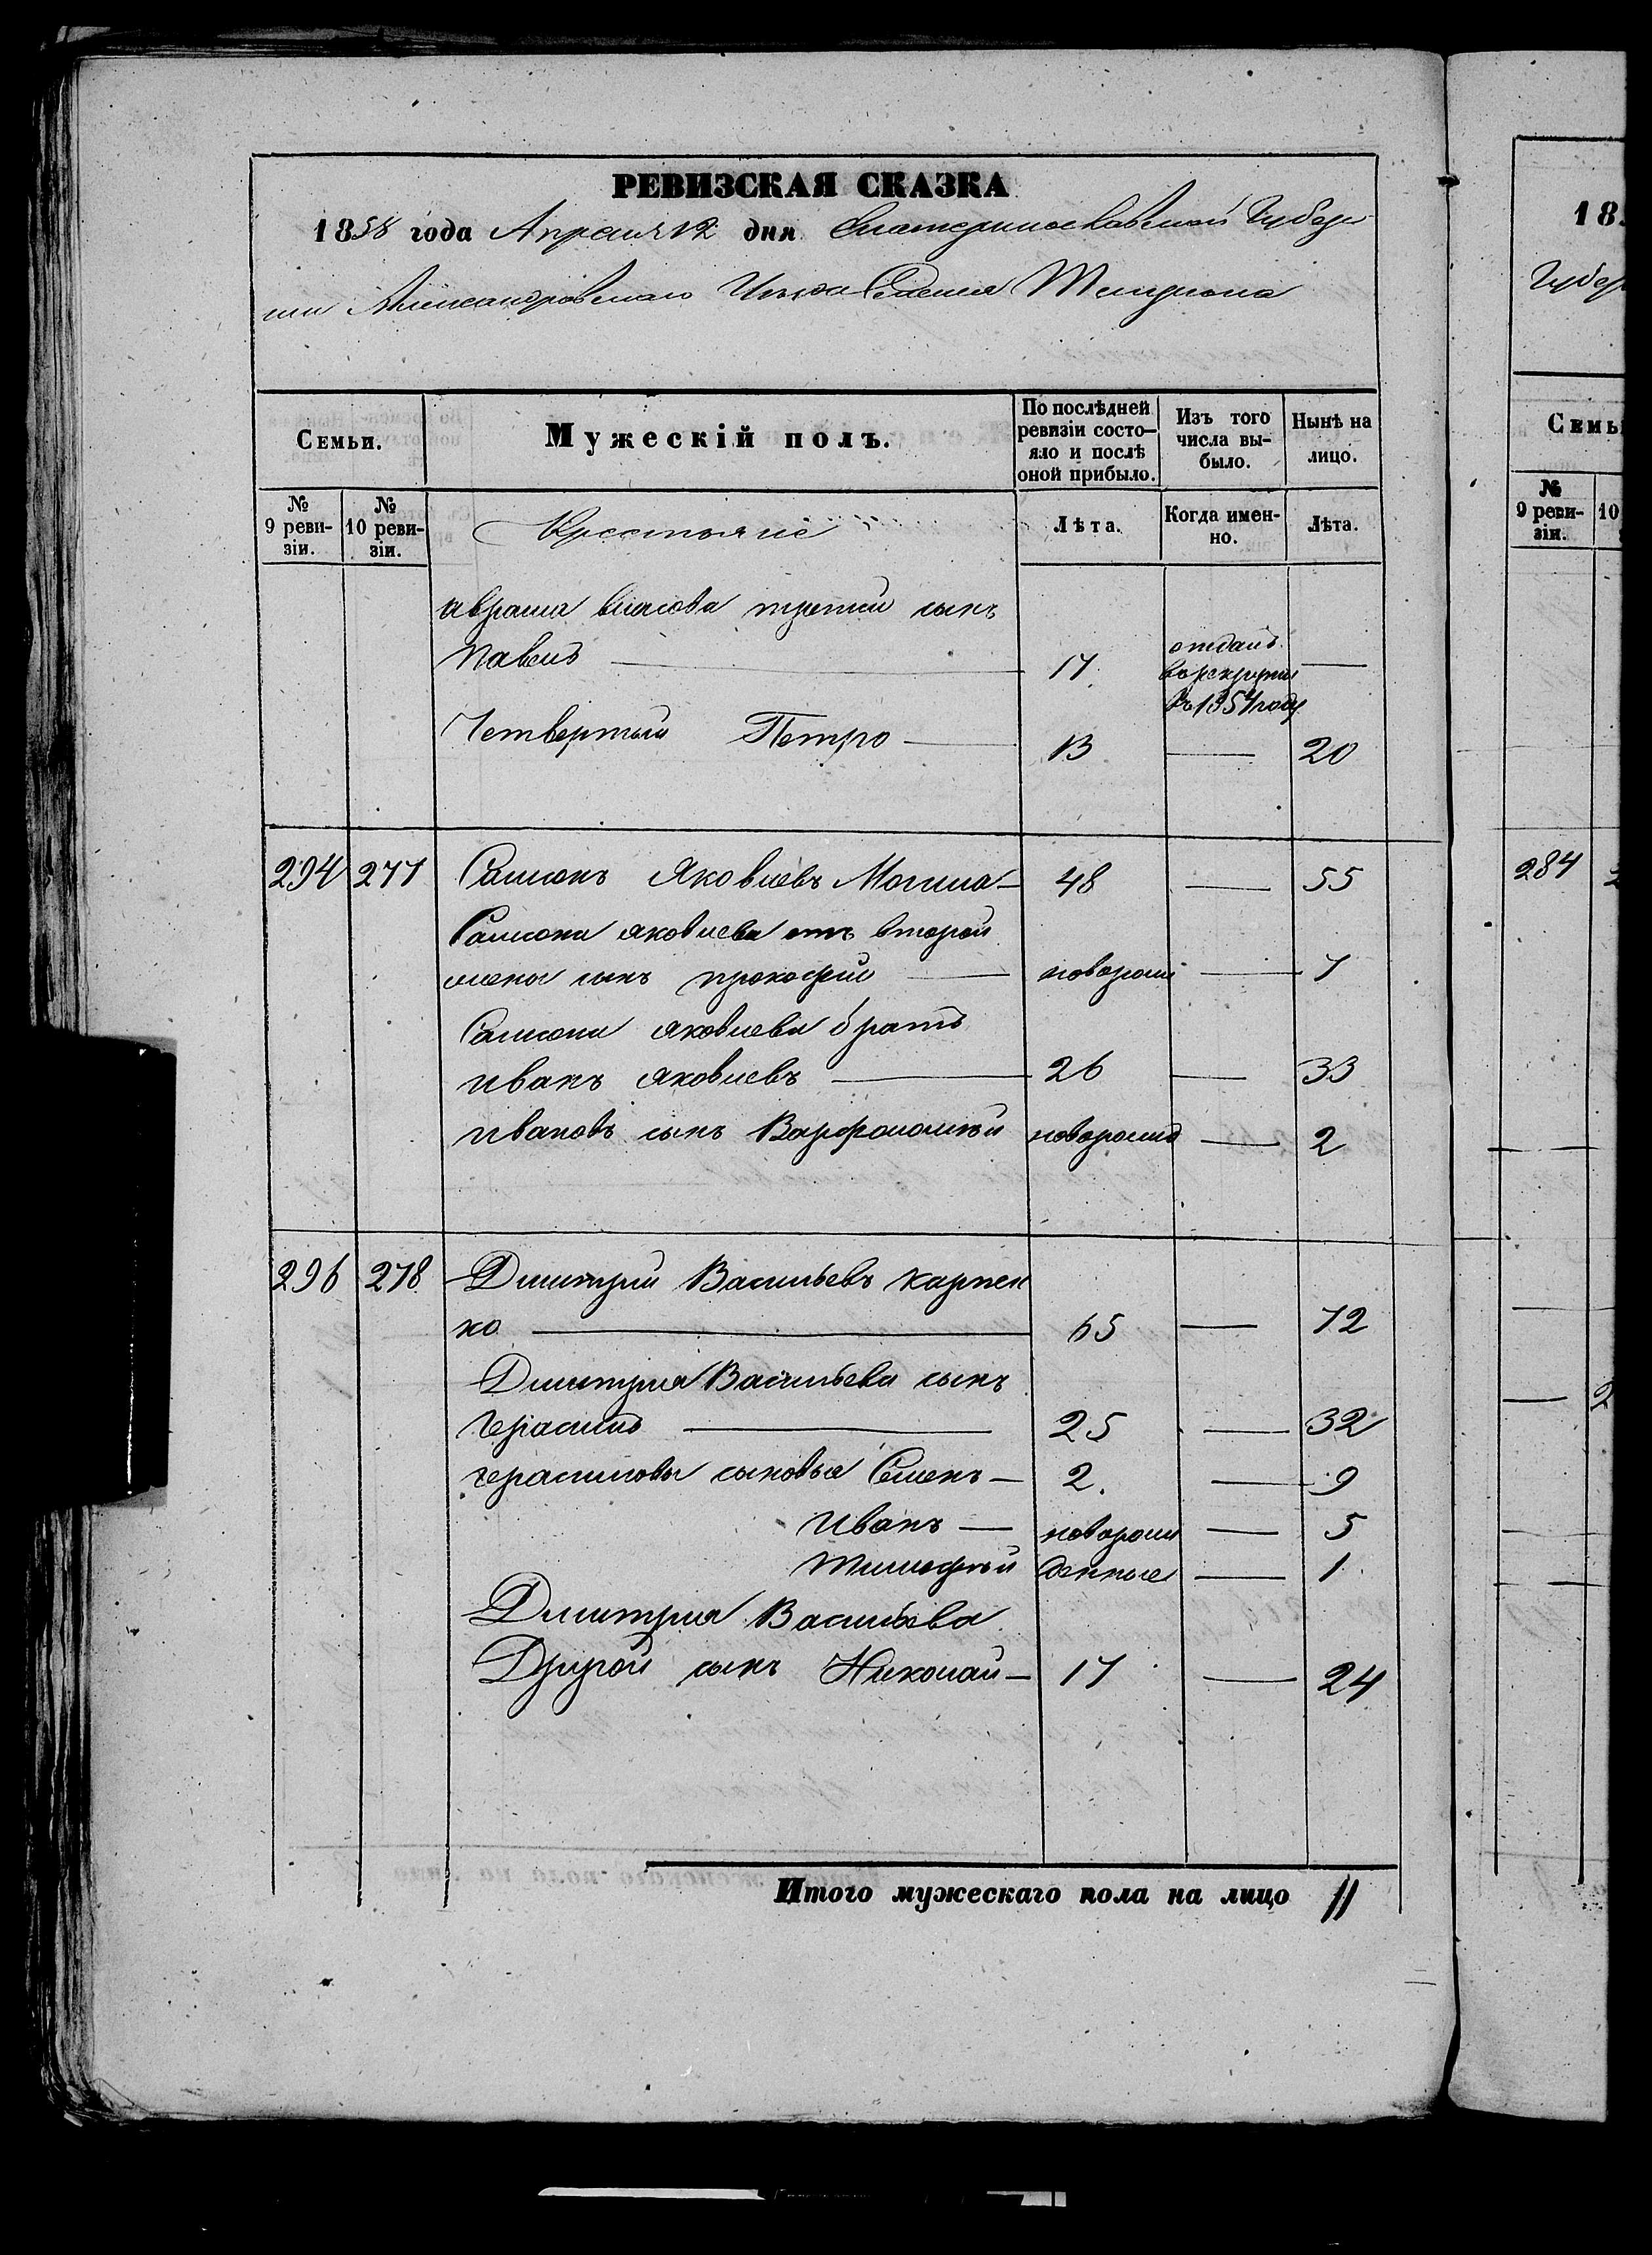 РЕВИЗСКАЯ СКАЗКА
1858 года Апреля 12 дня Екатеринославской Губер
нии Александровского Уезда Селения Темрюка
Семьи.
Мужескій полъ.
По послѣдней ревизіи состо-
яло и послѣ оной прибыло.
Изъ того числа вы-
было.
Нынѣ на лицо.
№ 9 реви-
зіи.
№ 10 реви-
зіи.
Крестьяне
Лѣта.
Когда имен-
но.
Лѣта.
Аврама Власова третий сынъ
Павелъ — 17 отданъ в рекруты въ 1854 году —
Четвертый Петро — 13 — 20
294 277 Самсонъ Яковлевъ Могила — 48 — 55
Самсона Яковлева отъ второй
жены сынъ Прокофий — новорож — 7
Самсона Яковлева братъ
Иванъ Яковлевъ — 26 — 33
Ивановъ сынъ Варфоломѣй новорожд — 2
296 278 Дмитрий Васильевъ Карпен
ко — 65 — 72
Дмитрия Васильева сынъ
Герасимъ — 25 — 32
Герасимовы сыновья Семенъ — 2. — 9
Иванъ — новорож — 5
Тимофѣй денные — 1
Дмитрия Васильева
Другой сынъ Николай — 17 — 24
Итого мужескаго пола на лицо 11
18
Губер
Семь
№ 9 реви-
зіи.
10
284 2
— 2